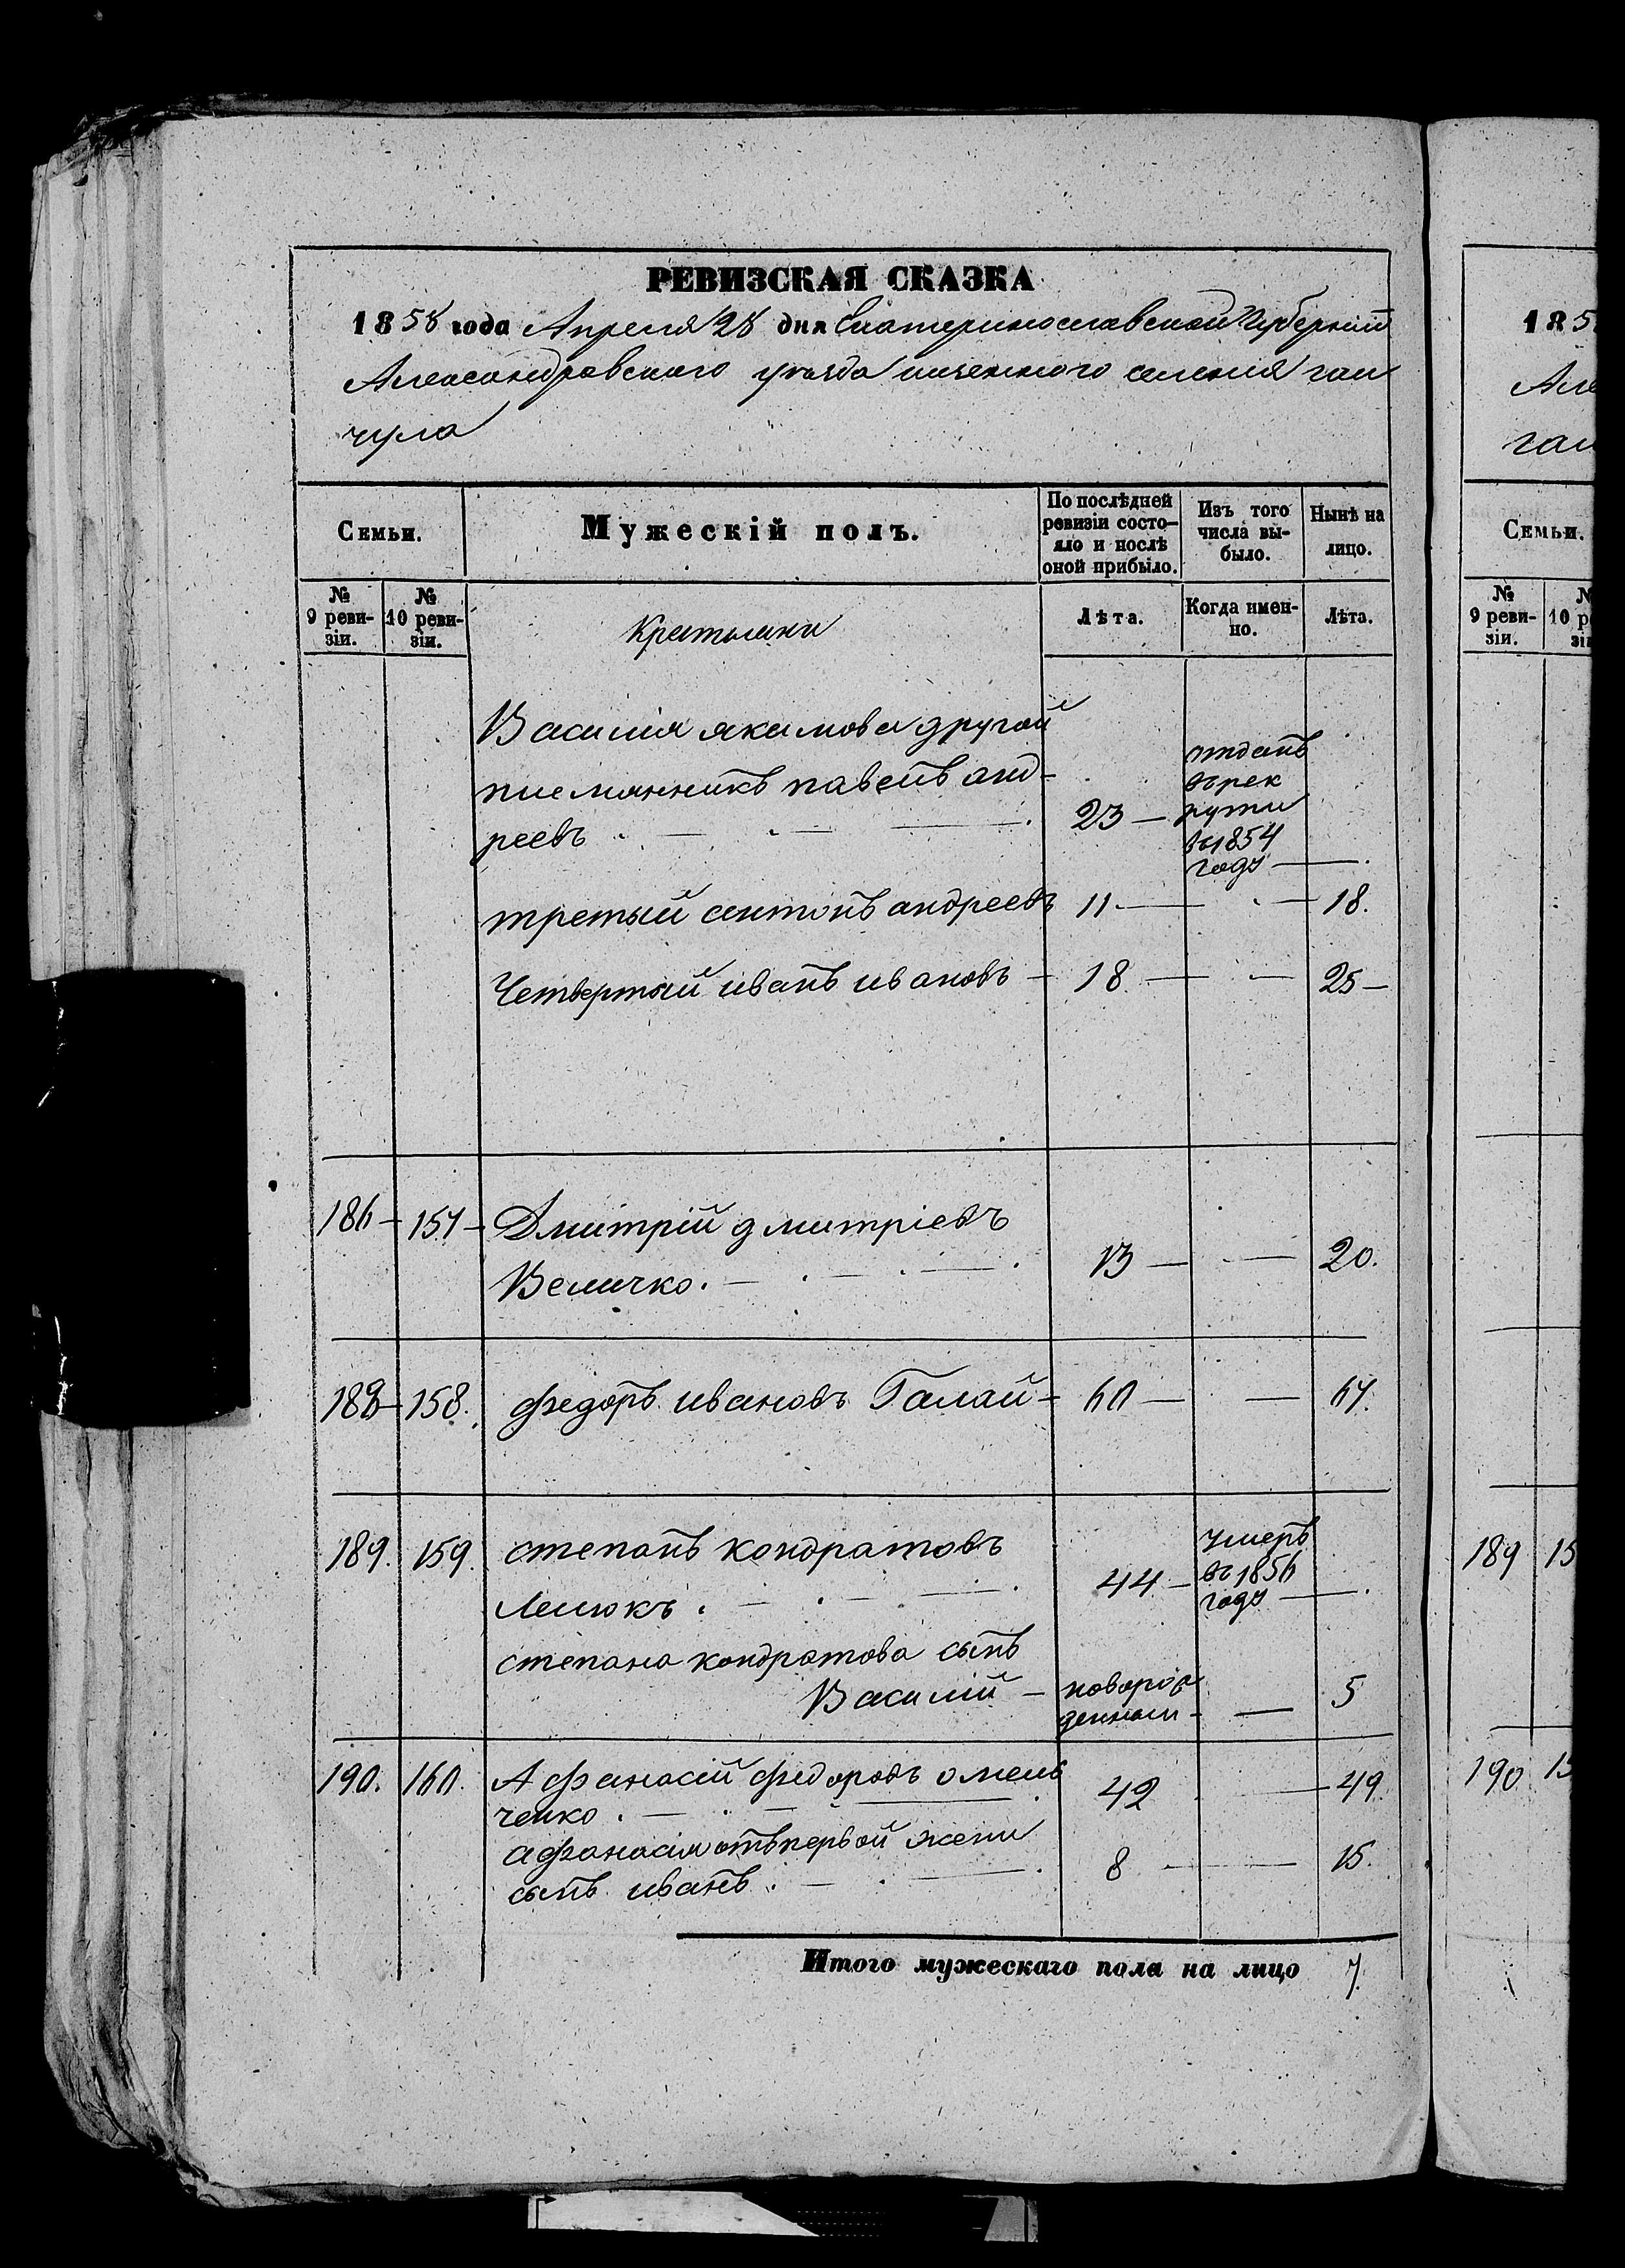 РЕВИЗСКАЯ СКАЗКА
1858 года Апреля 28 дня Екатеринославской Губерніи
Александровскаго уъзда казенного селенія гай
чула
Семьи.
Мужескій полъ.
По послѣдней ревизіи состояло и послѣ оной прибыло.
Изъ того числа выбыло.
Нынѣ на лицо.
№ 9 ревизіи.
№ 10 ревизіи.
Крестьяни
Лѣта.
Когда именно.
Лѣта.
Василія якимова другой
племянникъ павелъ анд-
реевъ 23 — отданъ въ рек рути въ 1854 году —
третый антонъ андреевъ 11 — — 18.
Четвертый иванъ ивановъ — 18 — — 25 —
186 — 157 — Дмитрій дмитріевъ
Величко. 13 — — 20.
188 — 158. федоръ ивановъ Галай — 60 — — 67.
189. 159. степанъ кондратовъ
Лелюкъ. 44 — умеръ въ 1856 году —
степана кондратова сынъ
Василій — новорож денной — — 5
190. 160. Афанасій федоровъ омель
ченко. 42 — 49.
афанасія отъ первой жени
сынъ иванъ. 8 — — 15.
Итого мужескаго пола на лицо 7.
185
Але
гай
Семьи.
№ 9 ревизіи.
189 15
190 15